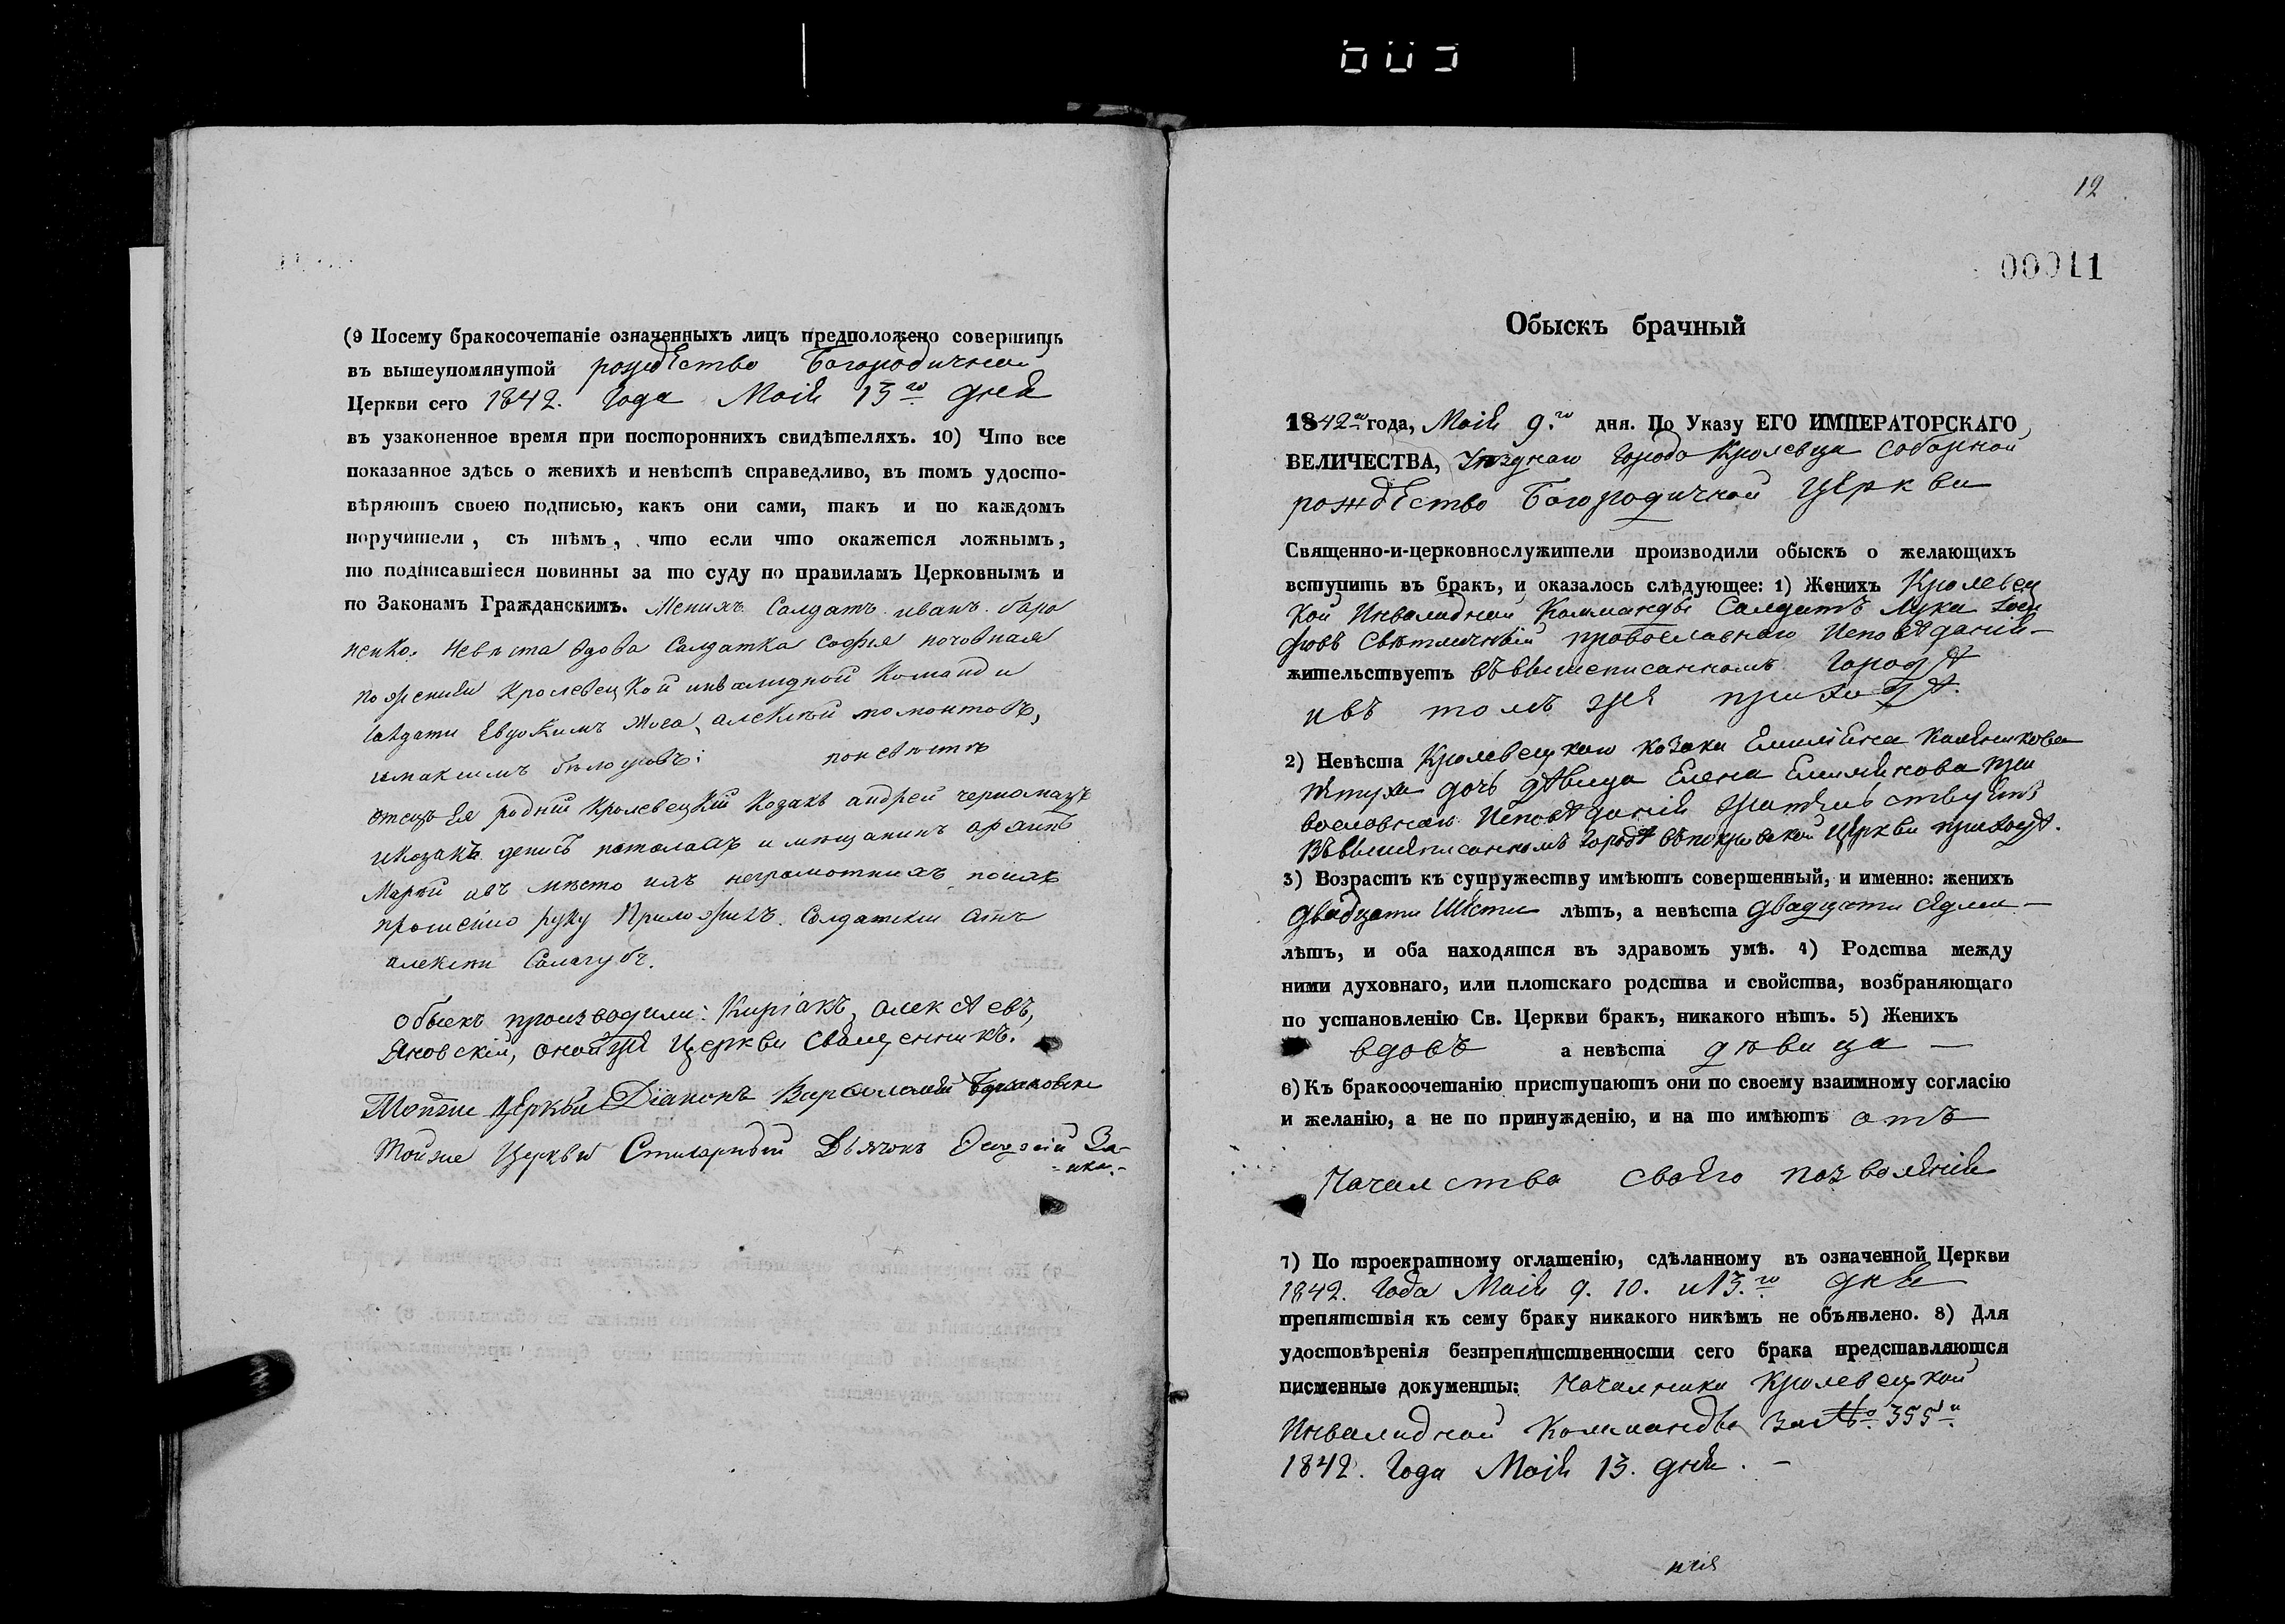 (9 Посему бракосочетаніе означенныхъ лицъ предположено совершить
въ вышеупомянутой рождество Богородичной
Церкви сего 1842. года Маія 13го дня
въ узаконенное время при постороннихъ свидѣтеляхъ. 10) Что все
показанное здѣсь о женихѣ и невѣстѣ справедливо, въ томъ удосто-
вѣряютъ своею подписью, какъ они сами, такъ и по каждомъ
поручители, съ тѣмъ, что если что окажется ложнымъ,
то подписавшіеся повинны за то суду по правиламъ Церковнымъ и
по Законамъ Гражданскимъ. Женихъ Солдатъ иванъ баро
ненко. Невѣста вдова Салдатка София
по женихи Кролевецкой инвалидной команди
Евдокимъ алексѣй мамонтовъ,
имаксимъ по невѣсти
отецъ Ея родній Кролевецкій Козакъ андрей черномазъ
икозакъ денисъ и мещанинъ
ивъ мѣсто ихъ неграмотнихъ поихъ
прошению руку Приложилъ Солдатски синъ
алексѣй Сологубъ.
обыскъ производили: Киріакъ, алексѣевъ,
Яновскій, онойже Церкви священникъ.
Тойже Церкви Діаконъ Варѳоломей
Тойже Церкви Стихарный Дьячокъ За-
-ика.-
12
00011
Обыскъ брачный
1842го года, Маія 9.го дня. По Указу ЕГО ИМПЕРАТОРСКАГО
ВЕЛИЧЕСТВА, Уѣзднаго города Кролевца Соборной
рождество Богородичной церкви
Священно-и-церковнослужители производили обыскъ о желающихъ
вступить въ бракъ, и оказалось слѣдующее: 1) Женихъ Кролевец
кой Инвалидной Комманды Салдатъ Лука Іоси
фовъ Свѣтличный провославнаго Исповѣданія-
жительствуетъ въвышеписанномъ городѣ
ивъ томъ же приходѣ.
2) Невѣста Кролевецкаго козака Емиліяна
Пѣтуха дочъ дѣвица Елена Емиліянова пра
вославнаго Исповѣданія жителствуетъ
Въвышеписанномъ городѣ въпокровской Церкви приходѣ.
3) Возрастъ къ супружеству имѣютъ совершенный, и именно: женихъ
двадцати Шести лѣтъ, а невѣста двадцати седми -
лѣтъ, и оба находятся въ здравомъ умѣ. 4) Родства между
ними духовнаго, или плотскаго родства и свойства, возбраняющаго
по установленію Св. Церкви бракъ, никакого нѣтъ. 5) Женихъ
вдовъ а невѣста дѣвица -
6) Къ бракосочетанію приступаютъ они по своему взаимному согласію
и желанію, а не по принужденію, и на то имѣютъ отъ
Началства своего позволенія
7) По троекратному оглашенію, сдѣланному въ означенной Церкви
1842. года Маія 9. 10. и13.го дня
препятствія къ сему браку никакого никѣмъ не объявлено. 8) Для
удостовѣренія безпрепятственности сего брака представляются
писменные документы: Началника Кролевецкой
Инвалидной Комманды за№ 355м
1842. года Маія 13. дня. -